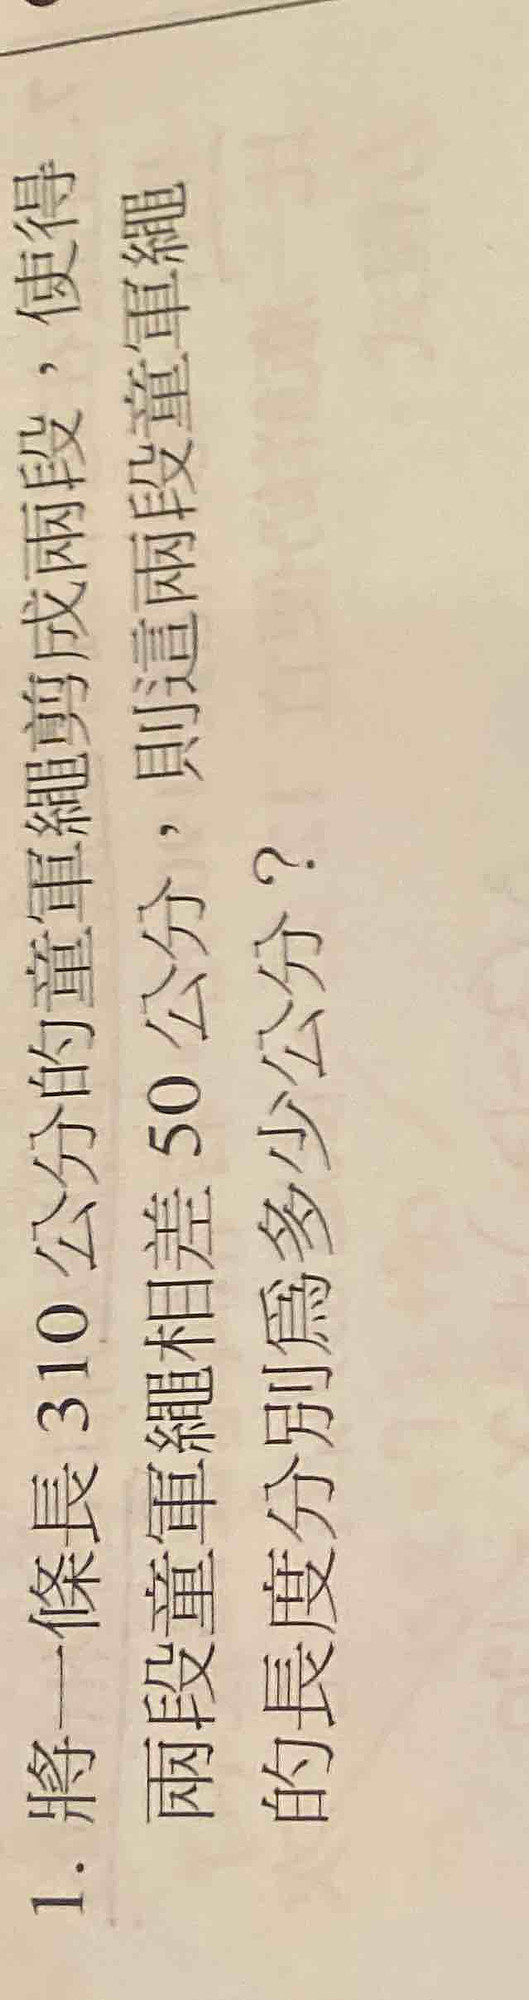 1. 將一條長 310 公分的童軍繩剪成兩段，使得
兩段童軍繩相差 50 公分，則這兩段童軍繩
的長度分別爲多少公分？